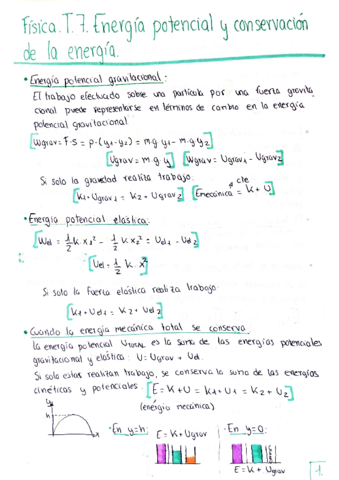 Física.T.7. Energía potencial y conservación
de la energía.
• Energía potencial gravitacional:
El trabajo efectuado sobre una partícula por una fuerza gravita
cional puede representarse en términos de cambio en la energía
potencial gravitacional
[Wgrav = F·S = p·(y1-y2) = m·g y1 - m·g y2]
[Ugrav = m·g·y] [Wgrav = Ugrav1 - Ugrav2]
Si solo la gravedad realiza trabajo:
[k1 + Ugrav1 = k2 + Ugrav2] [Emecánica = k + U] cte
• Energía potencial elástica:
[Wel = 1/2 k·x1² - 1/2 k x2² = Uel1 - Uel2]
[Uel = 1/2 k·x²]
Si solo la fuerza elástica realiza trabajo
[k1 + Uel1 = k2 + Uel2]
• Cuando la energía mecánica total se conserva
la energía potencial UTOTAL es la suma de las energías potenciales
gravitacional y elástica: U = Ugrav + Uel.
Si solo estas realizan trabajo, se conserva la suma de las energías
cinéticas y potenciales: [E = K + U = k1 + U1 = K2 + U2]
(energía mecánica)
y
h
• En y=h:
E = K + Ugrav
• En y=0:
E = K + Ugrav
1